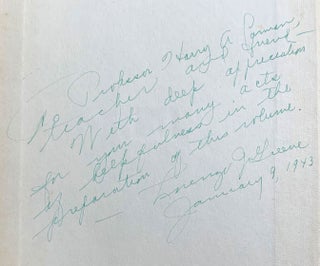 Professor Harry A.
teacher, and friend —
With deep appreciation
for your many acts
of helpfulness in the
preparation of this volume.
— Lorenzo J. Greene
January 9, 1943